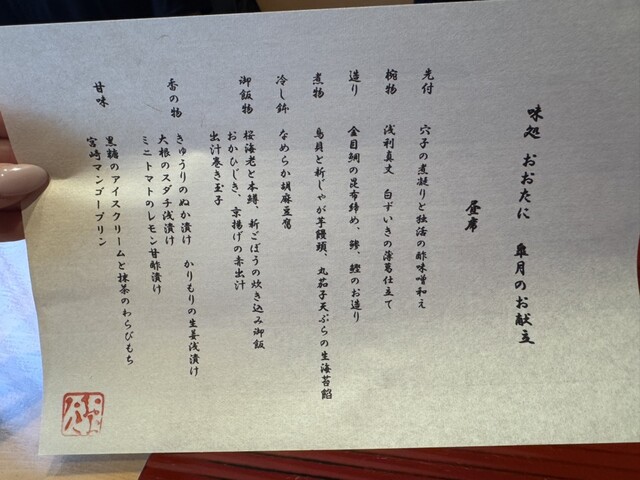 味処 おおたに 皐月のお献立
昼席
先付 穴子の煮凝りと独活の酢味噌和え
椀物 浅利真丈 白ずいきの薄葛仕立て
造り 金目鯛の昆布締め、鯵、鰹のお造り
煮物 鳥貝と新じゃが芋饅頭、丸茄子天ぷらの生海苔餡
冷し鉢 なめらか胡麻豆腐
御飯物 桜海老と本鱒、新ごぼうの炊き込み御飯
おかひじき、京揚げの赤出汁
出汁巻き玉子
香の物 きゅうりのぬか漬け かりもりの生姜浅漬け
大根のスダチ浅漬け
ミニトマトのレモン甘酢漬け
甘味 黒糖のアイスクリームと抹茶のわらびもち
宮崎マンゴープリン